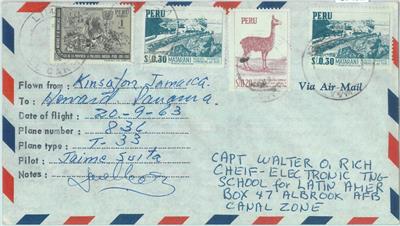 PERU
PERU
PERU
S/o.0.30
MATARANI
S/o.0.30
MATARANI
Via Air Mail
Flown from: Kinsgton Jamaica.
To: Howard Panama.
Date of flight: 20-9-63
Plane number: 836
Plane type: T-33
Pilot: Jaime
Notes:
CAPT WALTER O, RICH
CHEIF-ELECTRONIC TNG-
SCHOOL for LATIN AMER
BOX 47 ALBROOK AFB
CANAL ZONE